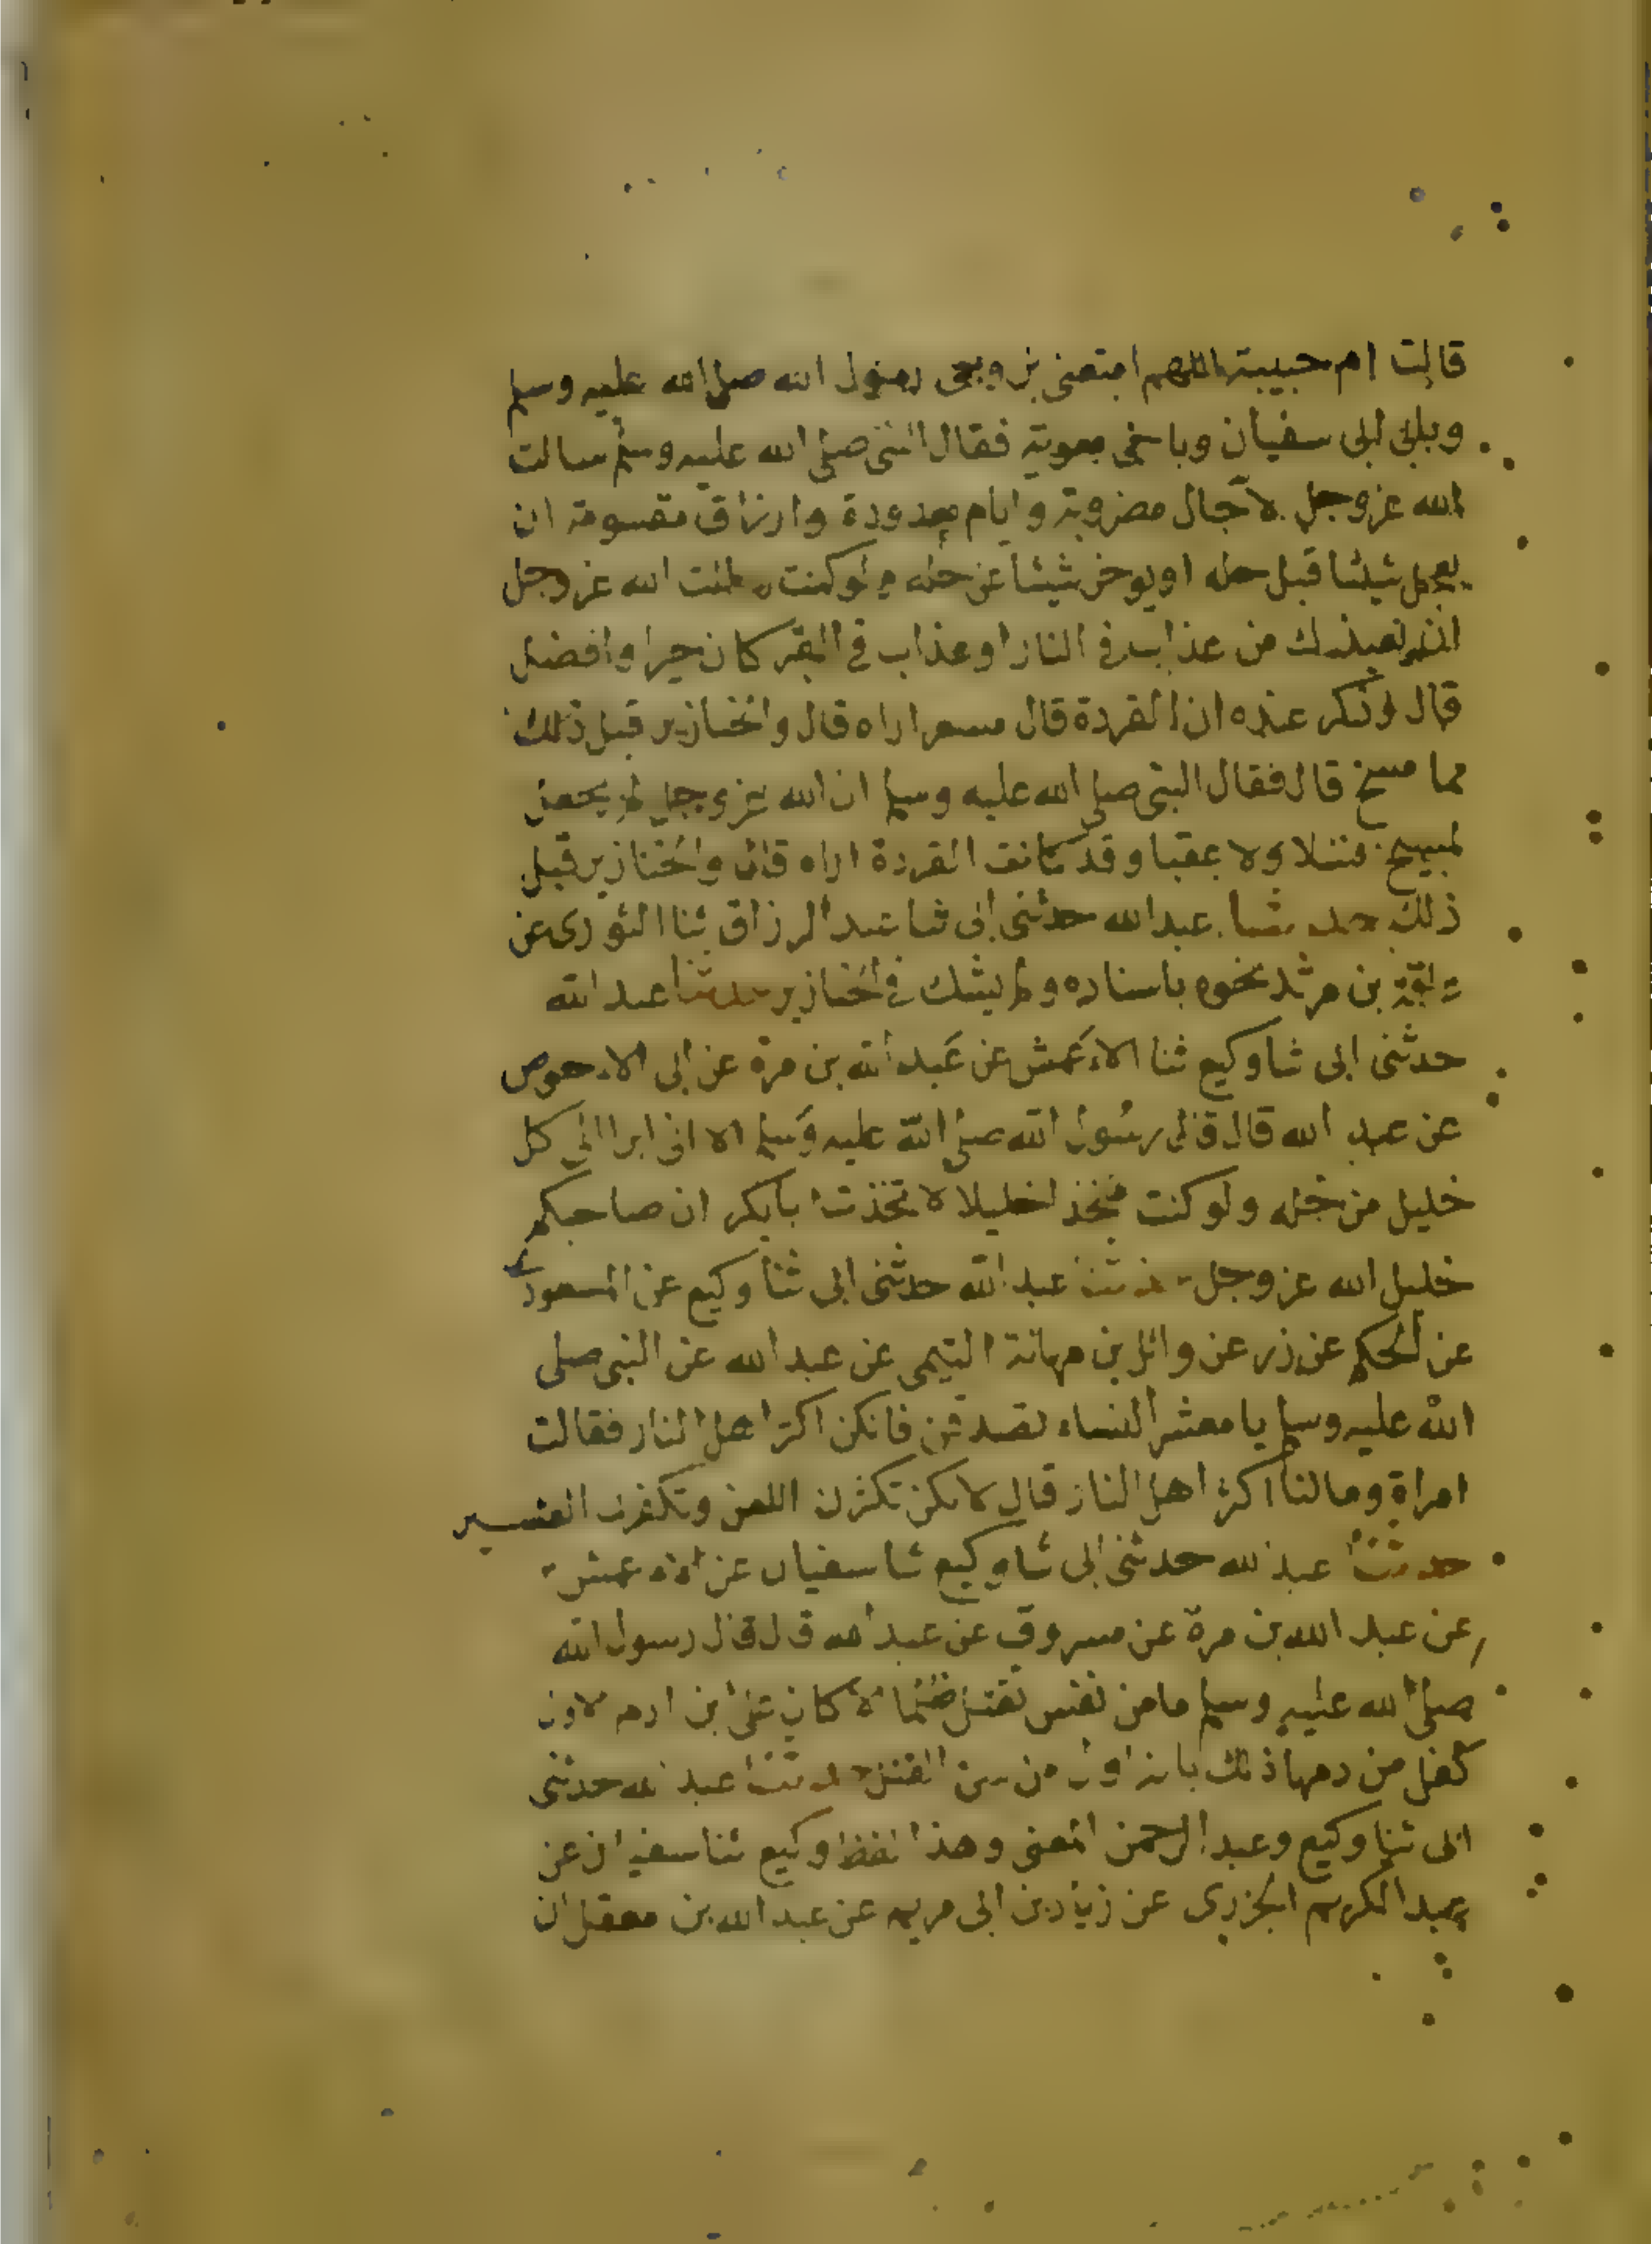 قالت ام حبيبة اللهم امتعنى بزوجى رسول الله صلى الله عليه وسلم
وبابى ابى سفيان وباخى معوية فقال النبى صلى الله عليه وسلم سالت
الله عز وجل لآجال مضروبة وايام معدودة وارزاق مقسومة ان
يعجل شيئا قبل حله او يوخر شيئا عن حله ولو كنت سالت الله عز وجل
ان يعيذك من عذاب فى النار او عذاب فى القبر كان خيرا وافضل
قال وذكر عنده ان القردة قال مسعر اراه قال والخنازير قبل ذلك
مما مسخ قال فقال النبى صلى الله عليه وسلم ان الله عز وجل لم يجعل
لمسيخ نسلا ولا عقبا وقد كانت القردة اراه قال والخنازير قبل
ذلك حدثنا عبد الله حدثنى ابى ثنا عبد الرزاق ثنا الثورى عن
علقمة بن مرثد نحوه باسناده ولم يشك فى الخنازير حدثنا عبد الله
حدثنى ابى ثنا وكيع ثنا الاعمش عن عبد الله بن مرة عن ابى الاحوص
عن عبد الله قال قال رسول الله صلى الله عليه وسلم الا انى ابرا الى كل
خليل من خله ولو كنت متخذا خليلا لاتخذت ابا بكر ان صاحبكم
خليل الله عز وجل حدثنا عبد الله حدثنى ابى ثنا وكيع عن المسعودى
عن الحكم عن ذر عن وائل بن مهانة التيمى عن عبد الله عن النبى صلى
الله عليه وسلم يا معشر النساء تصدقن فانكن اكثر اهل النار فقالت
امراة ومالنا اكثر اهل النار قال لانكن تكثرن اللعن وتكفرن العشير
حدثنا عبد الله حدثنى ابى ثنا وكيع ثنا سفيان عن الاعمش
عن عبد الله بن مرة عن مسروق عن عبد الله قال قال رسول الله
صلى الله عليه وسلم ما من نفس تقتل ظلما الا كان على ابن ادم الاول
كفل من دمها ذلك بانه اول من سن القتل حدثنا عبد الله حدثنى
ابى ثنا وكيع وعبد الرحمن المعنى وهذا لفظ وكيع ثنا سفيان عن
عبد الكريم الجزرى عن زياد بن ابى مريم عن عبد الله بن معقل ان